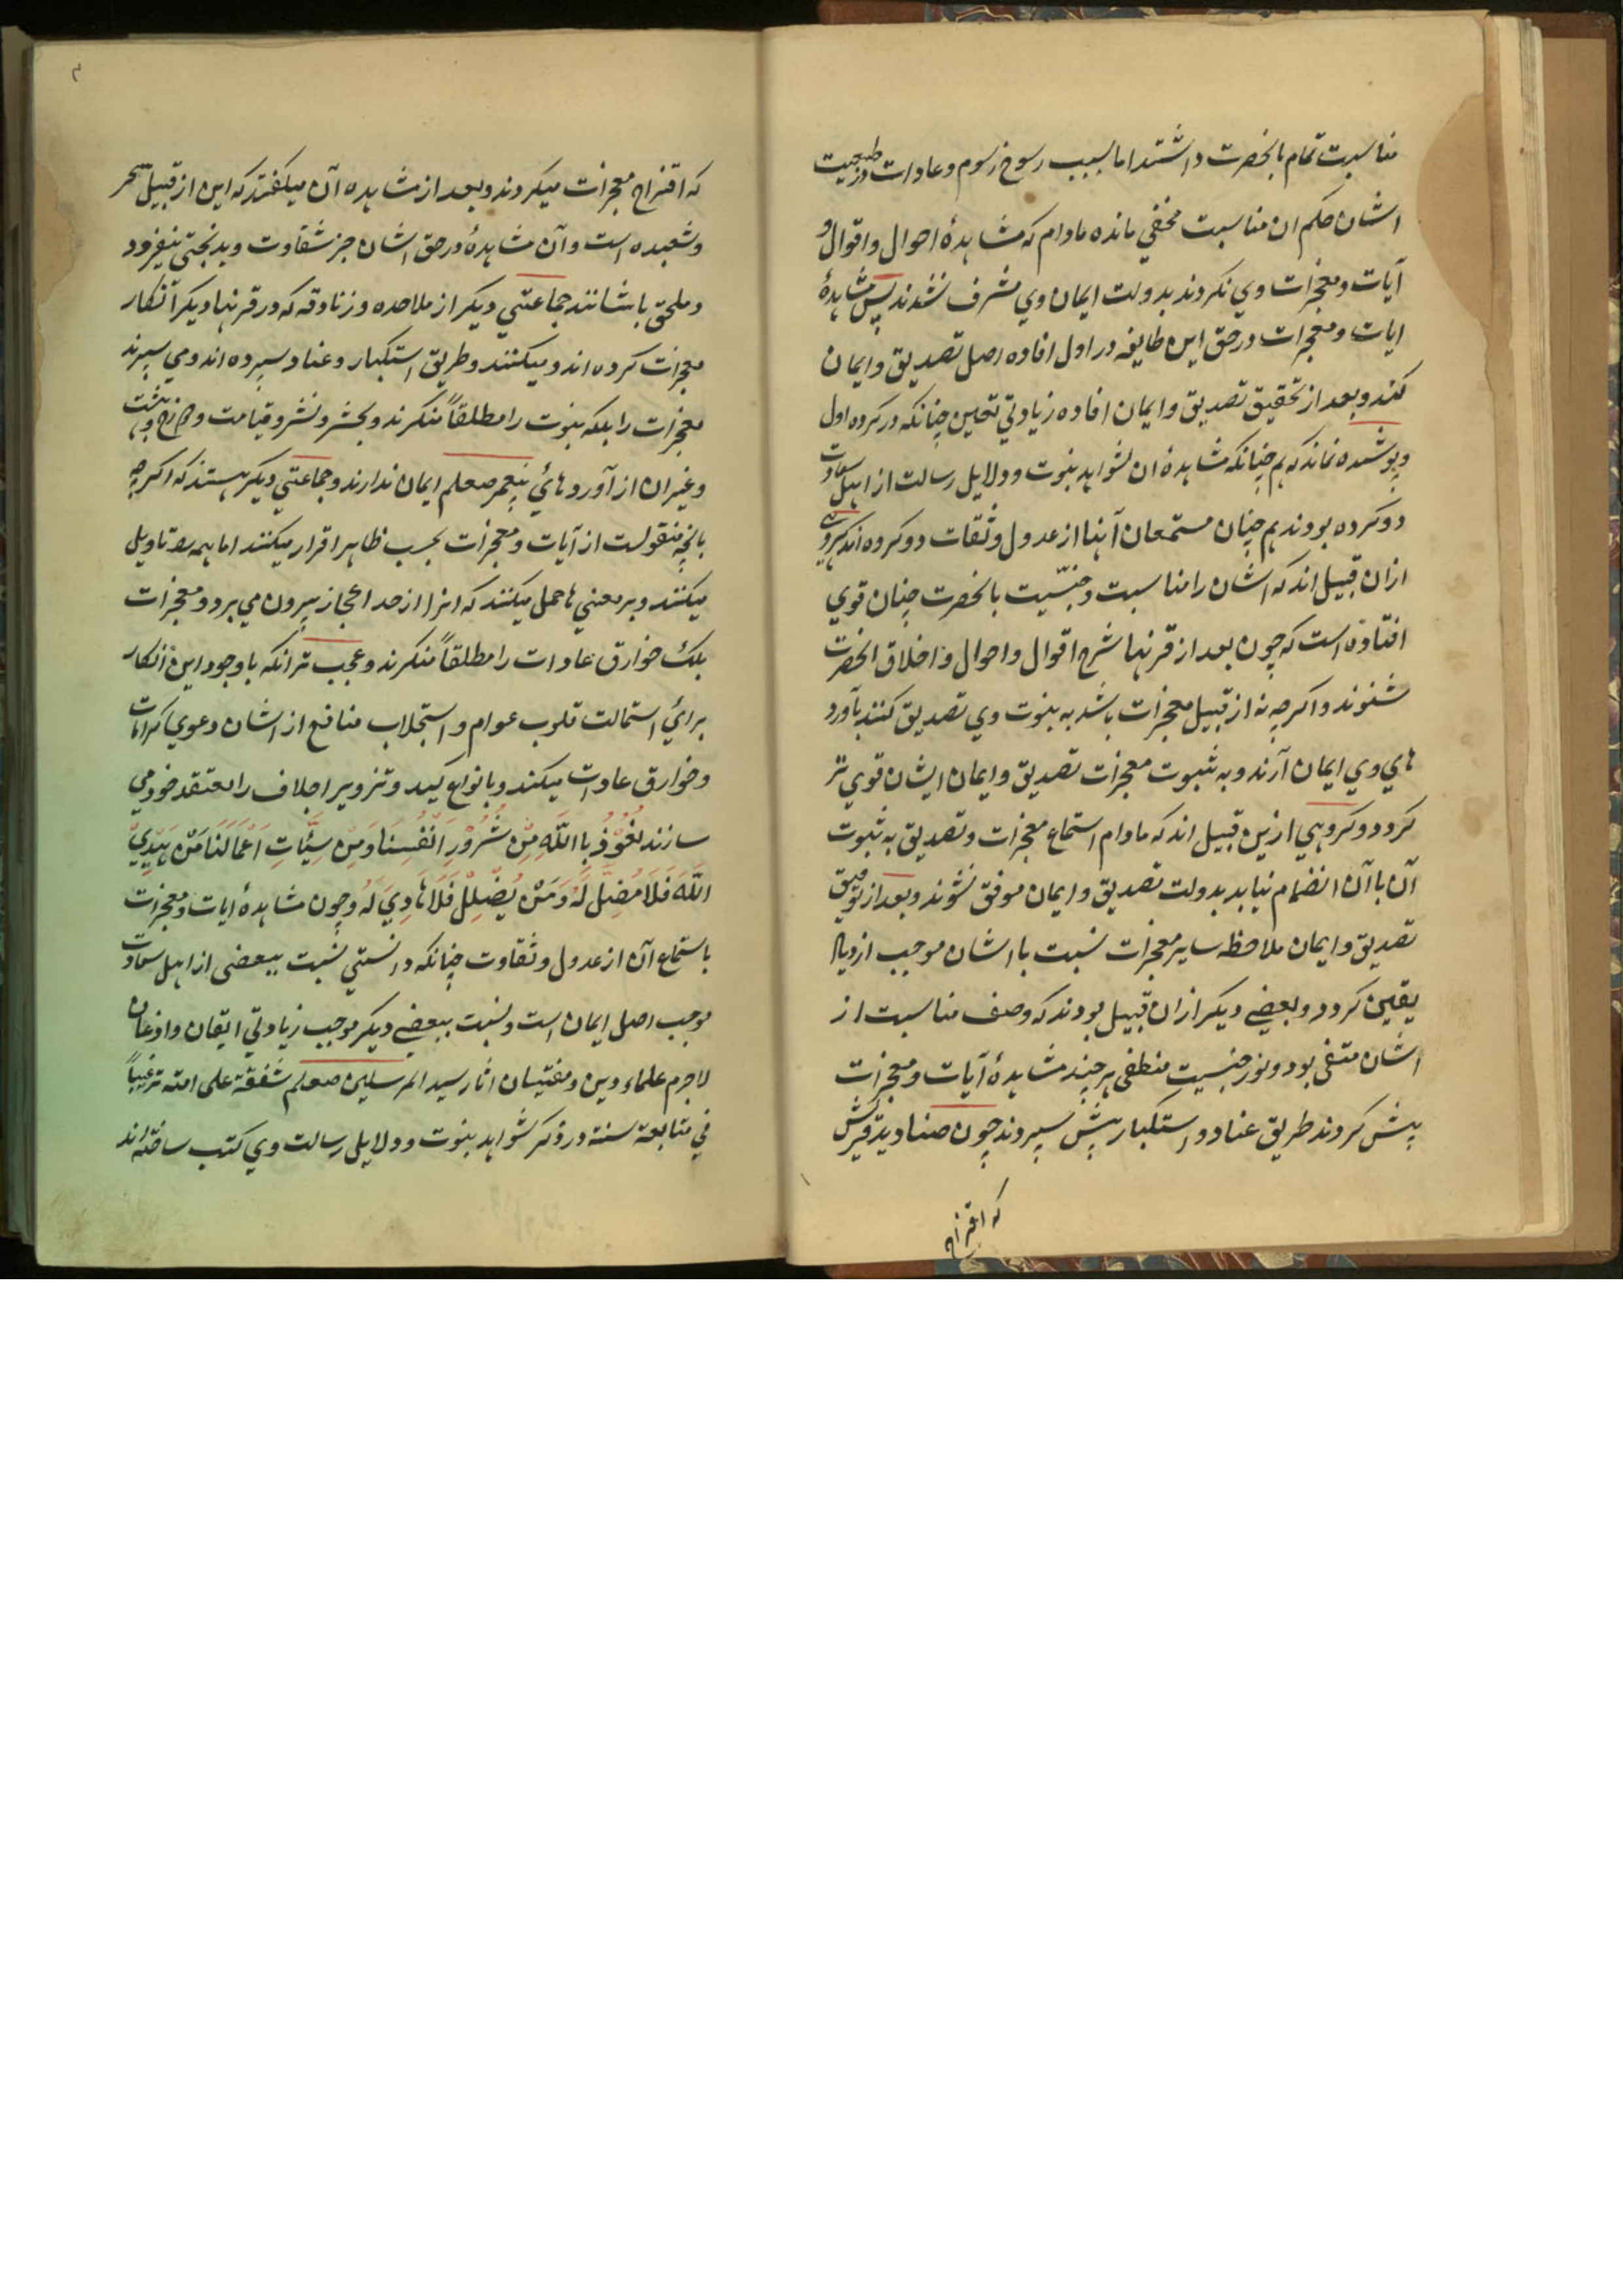 مناسبت تمام بانحضرت داشتند اما بسبب رسوخ رسوم و عادات در طبیعت
اشان حکم ان مناسبت مخفي مانده مادام که مشاهدهٔ احوال و اقوال و
آیات و معجزات وي نکردند بدولت ایمان وي مشرف نشدند پس مشاهدهٔ
ایات و معجزات در حق این طایفه در اول افاده اصل تصدیق و ایمان
کند و بعد از تحقیق تصدیق و ایمان افاده زیادتي تعین چنانکه در کروه اول
و پوشیده نماند که هم چنانکه مشاهدهٔ ان شواهد نبوت و دلایل رسالت از اهل سعادت
دو کروه بودند هم چنان مستمعان آنها از عدول و ثقات دو کروه اند کروهي
ازان قبیل اند که اشان را مناسبت و جنسّیت بانحضرت چنان قوي
افتاده است که چون بعد از قرنها شرح اقوال و احوال و اخلاق انحضرت
شنوند و اکرچه نه از قبیل معجزات باشد به نبوت وي تصدیق کنند بآورد
هاي وي ایمان آرند و به ثبوت معجزات تصدیق و ایمان ایشان قوي تر
کردد و کروهي ازین قبیل اند که مادام استماع معجزات و تصدیق به ثبوت
آن با آن انضمام نیابد بدولت تصدیق و ایمان موفق نشوند و بعد از توفیق
تصدیق و ایمان ملاحظه سایر معجزات نسبت با اشان موجب ازدیاد
یقین کردد و بعضے دیکر ازان قبیل بودند که وصف مناسبت از
اشان متفی بود و نور جنسیت منطفی هر چند مشاهدهٔ آیات و معجزات
پیش کردند طریق عناد و استکبار پیش سپردند چون صنادید قریش
که اقتراح
که اقتراح معجزات میکردند و بعد از مشاهده آن میلفتند که این از قبیل سحر
و شعبده است و آن مشاهدهٔ در حق اشان جز شقاوت و بدبختي نیفزود
و ملحق باشانند جماعتي دیکر از ملاحده و زنادقه که در قرنهاء دیکر آنکار
معجزات کرده اند و میکنند و طریق استکبار و عناد سپرده اند و مي سپرند
معجزات را بلکه نبوت را مطلقاً منکرند و بحشر و نشر و قیامت و دوزخ و بهشت
و غیر ان از آورد هائ پیغمبر صعلم ایمان ندارند و جماعتي دیکر هستند که اکرچه
بانچه منقولست از آیات و معجزات بحسب ظاهر اقرار میکنند اما همه را تاویل
میکنند و بر معني ها حمل میکنند که انرا از حد اعجاز بیرون مي برد و معجزات
بلک خوارق عادات را مطلقاً منکرند و عجب تر انکه با وجود این آنکار
براي استمالت قلوب عوام و استجلاب منافع از اشان دعوي کرامات
و خوارق عادات میکنند و بانواع کید و تزویر اجلاف را معتقد خود مي
سازند نَعُوْذُ بِا اللّٰهِ مِنْ شُرُوْرِ اَنْفُسِنَا وَمِنْ سَیِّئَاتِ اَعْمَالِنَا مَنْ یَهْدِيْ
اللّٰهُ فَلَا مُضِلَّ لَهُ وَمَنْ یُضْلِلْ فَلَا هَادِيَ لَهُ و چون مشاهدهٔ ایات و معجزات
باستماع آن از عدول و ثقاوت چنانکه دانستي نسبت ببعضی از اهل سعادت
موجب اصل ایمان است و نسبت ببعضے دیکر موجب زیادتي ایقان و اذعان
لاجرم علماء دین و مفتیسان اثار سید المرسلین صعلم شفقة علی امته ترغیباً
في متابعة سنته در ذکر شواهد نبوت و دلایل رسالت وي کتب ساخته اند